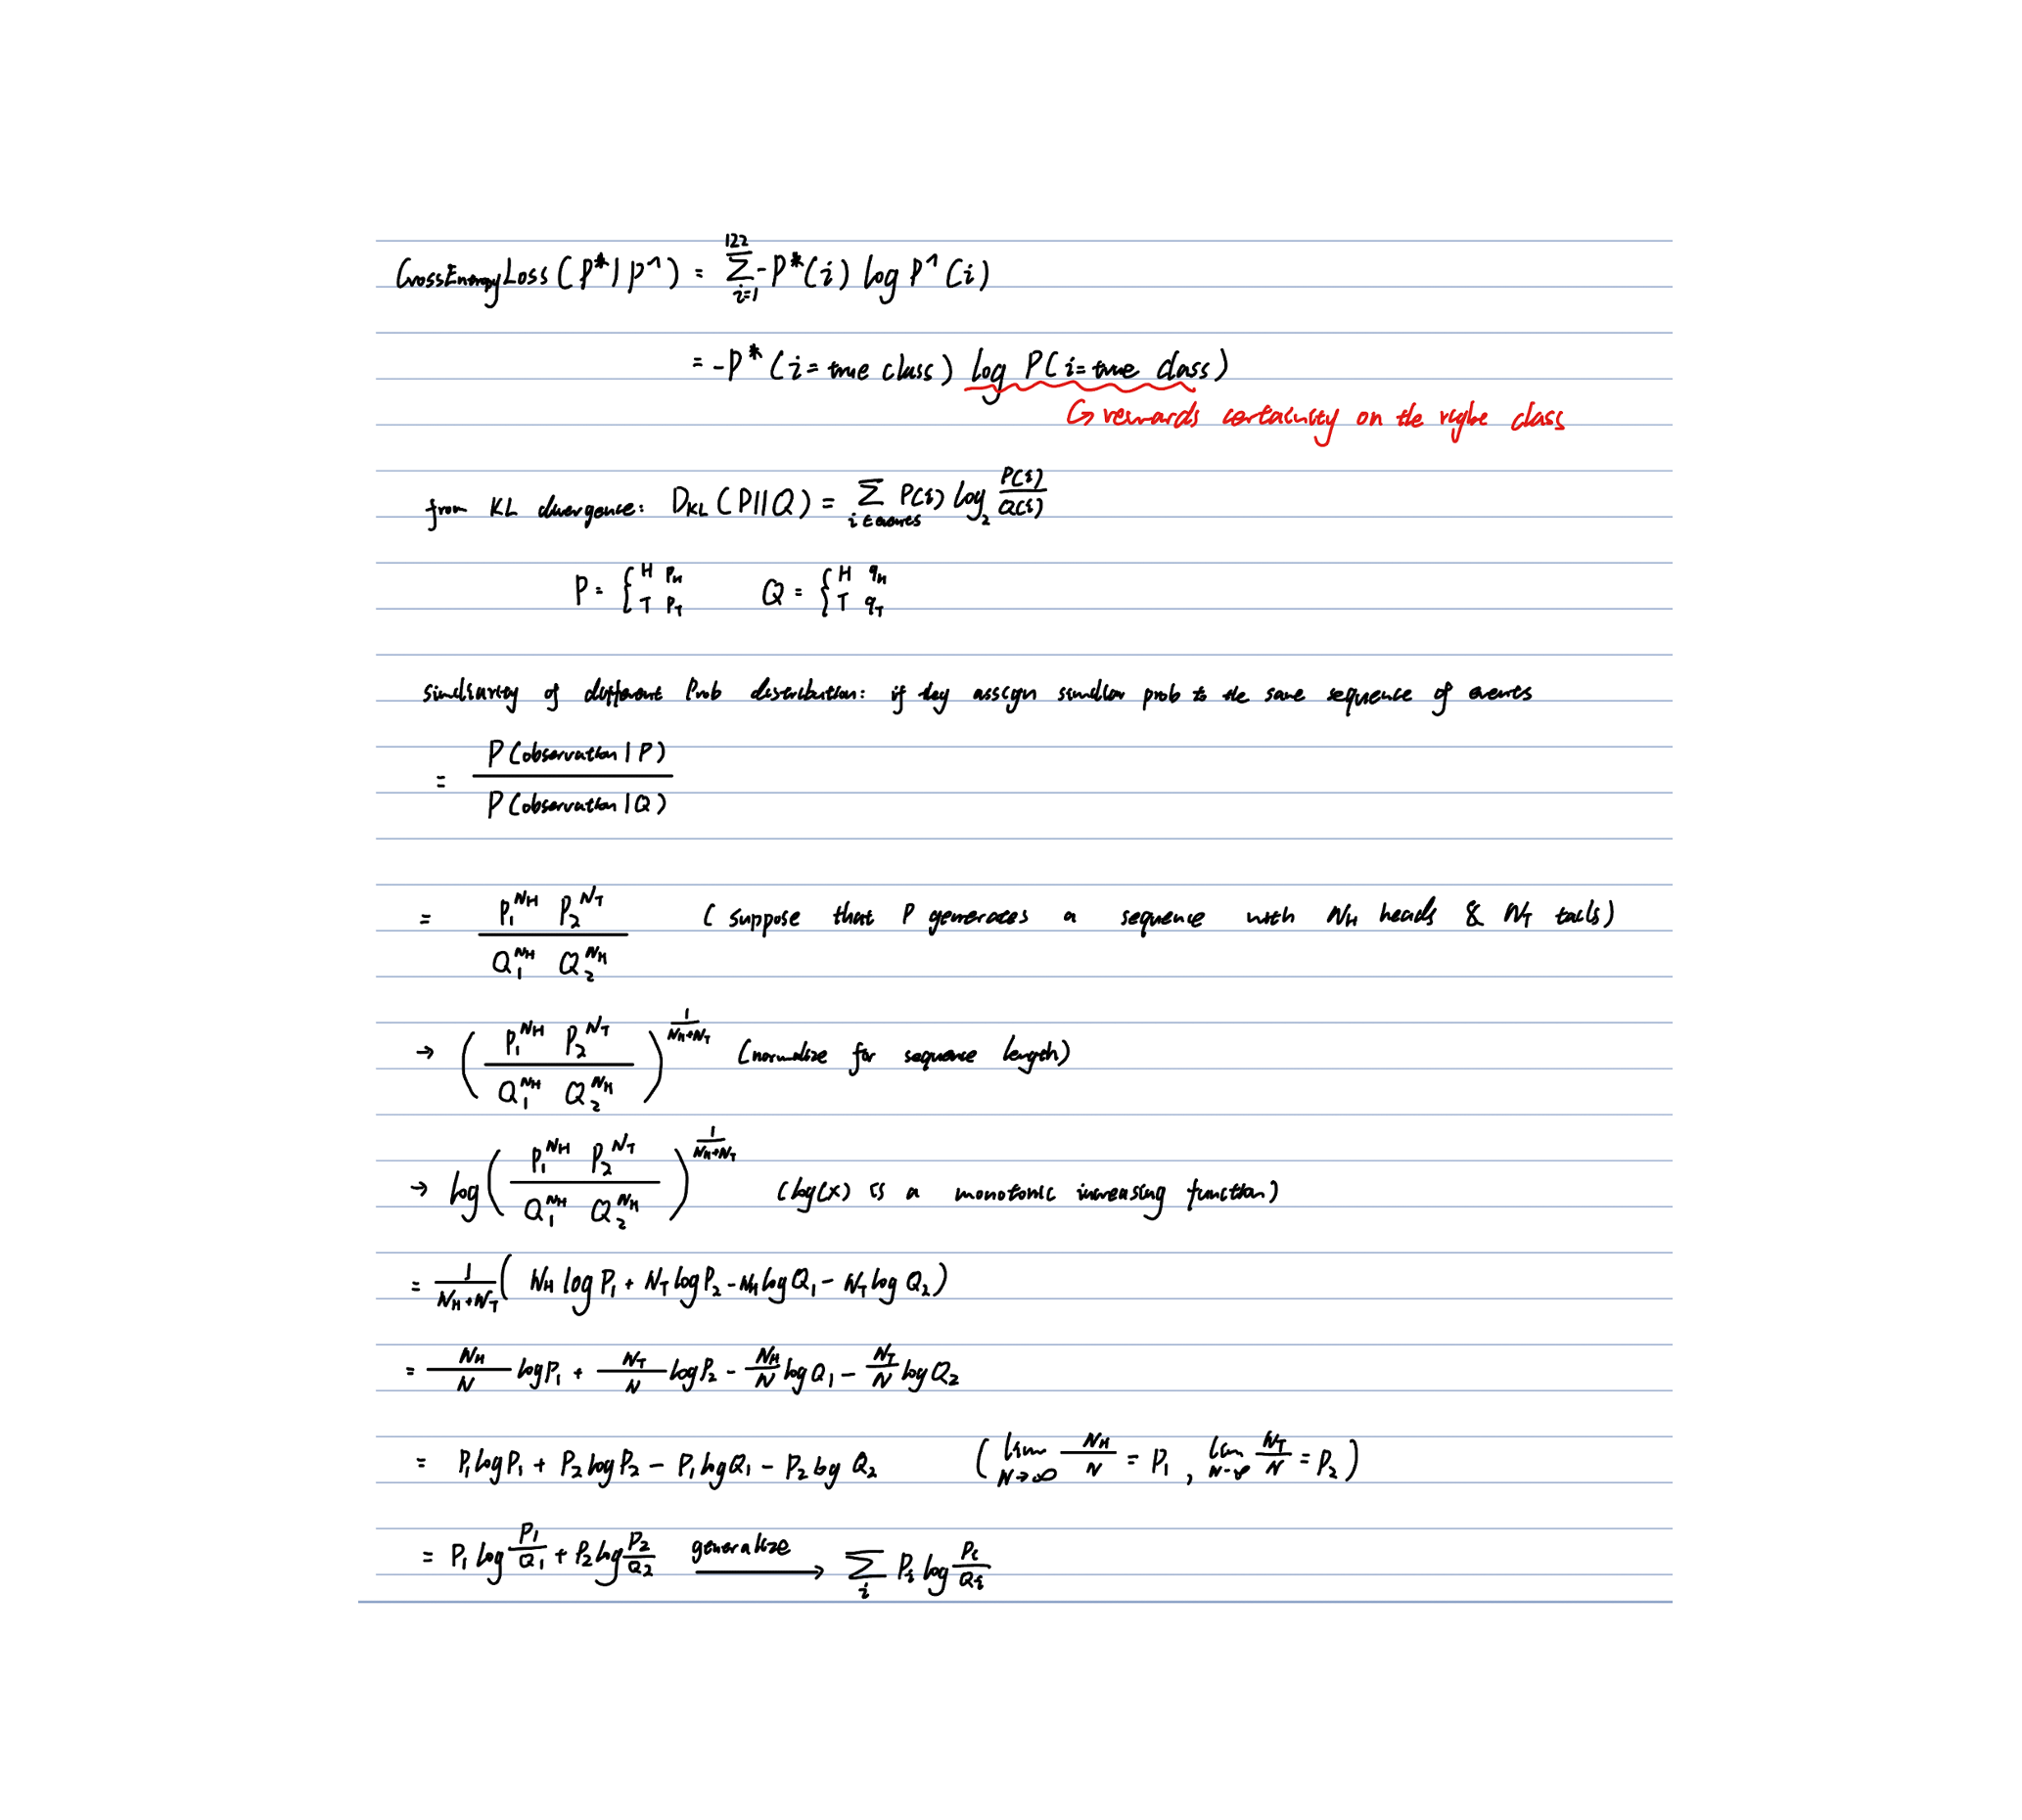 CrossEntropyLoss(P*|P^) = Σ_{i=1}^{122} -P*(i) log P^(i)
= -P*(i=true class) log P(i=true class)
↳ rewards certainity on the right class
from KL divergence: D_KL(P||Q) = Σ_{i∈events} P(i) log_2 P(i)/Q(i)
P = { H p_H T p_T Q = { H q_H T q_T
similarity of different Prob distribution: if they assign similar prob to the same sequence of events
= P(observation|P) / P(observation|Q)
= P_1^{N_H} P_2^{N_T} / Q_1^{N_H} Q_2^{N_H} (suppose that P generates a sequence with N_H heads & N_T tails)
→ (P_1^{N_H} P_2^{N_T} / Q_1^{N_H} Q_2^{N_H})^{1/(N_H+N_T)} (normalize for sequence length)
→ log(P_1^{N_H} P_2^{N_T} / Q_1^{N_H} Q_2^{N_H})^{1/(N_H+N_T)} (log(x) is a monotonic increasing function)
= 1/(N_H+N_T) (N_H log P_1 + N_T log P_2 - N_H log Q_1 - N_T log Q_2)
= N_H/N log P_1 + N_T/N log P_2 - N_H/N log Q_1 - N_T/N log Q_2
= P_1 log P_1 + P_2 log P_2 - P_1 log Q_1 - P_2 log Q_2 (lim_{N→∞} N_H/N = P_1, lim_{N→∞} N_T/N = P_2)
= P_1 log P_1/Q_1 + P_2 log P_2/Q_2 generalize → Σ_i P_i log P_i/Q_i